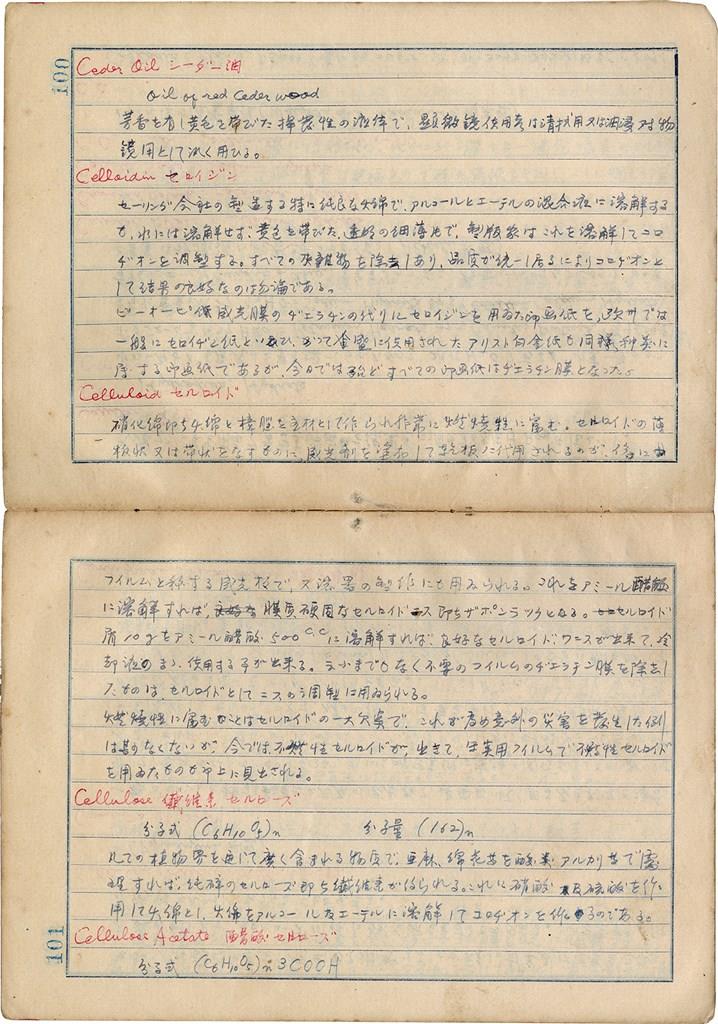 100
Ceder Oil シーダー油
Oil of red Ceder wood
芳香を有し黄色を帯びた揮発性の液体で、顕微鏡使用者は清拭用又は油浸対物
鏡用として汎く用ひる。
Celloidin セロイジン
セーリング会社の製造する特に純良な火綿で、アルコールとエーテルの混合液に溶解する
も、水には溶解せず、黄色を帯びた、透明の細薄片で、製版家はこれを溶解してコロ
ヂオンを調製する。すべての夾雑物を除去しあり、品質が統一し居るによりコロヂオンと
して結果の良好なのは勿論である。
ピーオーピー 感光膜のヂエラチンの代りにセロイジンを用ゐた印画紙を、欧州では
一般にセロイヂン紙といひ、かつて全盛に使用されたアリスト白金紙も同様種類に
属する印画紙であるが、今日では殆どすべての印画紙はヂエラチン膜となった。
Celluloid セルロイド
硝化綿即ち火綿と樟脳を主材として作られ非常に燃焼性に富む。セルロイドの薄
板状又は帯状をなすものに、感光剤を塗布して乾板に代用されるのが、俗に
フイルムと称する感光板で、又漆器の製作にも用ゐられる。これをアミール醋酸
に溶解すれば、膜質硬固なセルロイドニス即ちザポンラックとなる。セルロイド
屑10gをアミール醋酸500c.c.に溶解すれば、良好なセルロイド、ワニスが出来て、冷
却液のまゝ使用する事が出来る。云ふまでもなく不要のフイルムのヂエラチン膜を除去し
たものは、セルロイドとしてニスの調製に用ゐられる。
燃焼性に富むことはセルロイドの一大欠点で、これが為め意外の災害を発生した例
は尠なくないが、今では不燃性セルロイドが出来て、実用フイルムで不燃性セルロイド
を用ゐたものが市上に見出される。
Cellulose 繊維素 セルローズ
分子式 (C6H10O5)n 分子量 (162)n
凡ての植物界を通じて広く含まれる物質で、亜麻、綿花等を酸類アルカリ等で処
理すれば、純粋のセルローズ即ち繊維素が得られる。これに硝酸及硫酸を作
用して火綿とし、火綿をアルコール及エーテルに溶解してコロヂオンを作るのである。
Cellulose Acetate 醋酸セルローズ
分子式 (C6H10O5)n 3COOH
101